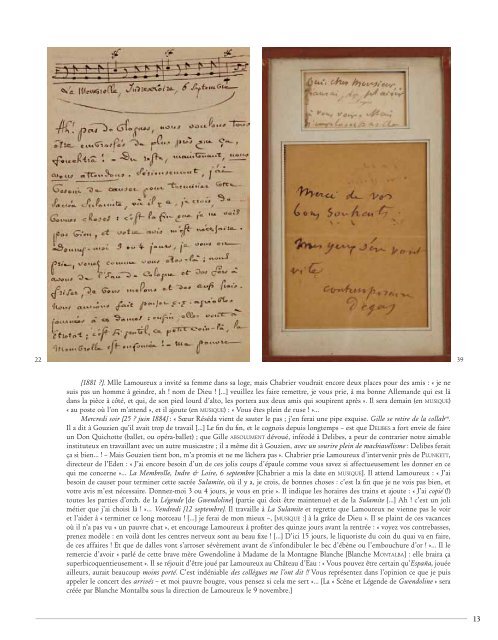 La Membrolle, Indre & Loire, 6 Septembre
Ah! pas de blagues, nous voulons tous
être embrassés de plus près que ça,
fouchtra! - Du reste, maintenant, nous
vous attendons. Sérieusement, j'ai
besoin de causer pour terminer cette
sacrée Sulamite, où il y a, je crois, de
bonnes choses : c'est la fin que je ne vois
pas bien, et votre avis m'est nécessaire.
Donnez-moi 3 ou 4 jours, je vous en
prie, venez comme vous êtes-là; nous
avons de l'Eau de Cologne et des fers à
friser, de bons melons et des œufs frais.
Nous avions fait passer
journées à ces dames: enfin, elles vont à
Etretat; c'est si gentil, ce petit coin-là, la
Membrolle est enfoncée! - ma pauvre
Oui, cher Monsieur
plaisir
à vous voir. Mais
Merci de vos
bons souhaits.
Mes yeux s'en vont
vite
contemporain
Degas
22
39
[1881 ?]. Mlle Lamoureux a invité sa femme dans sa loge, mais Chabrier voudrait encore deux places pour des amis : « je ne
suis pas un homme à geindre, ah ! nom de Dieu ! [...] veuillez les faire remettre, je vous prie, à ma bonne Allemande qui est là
dans la pièce à côté, et qui, de son pied lourd d'alto, les portera aux deux amis qui soupirent après ». Il sera demain (en MUSIQUE)
« au poste où l'on m'attend », et il ajoute (en MUSIQUE) : « Vous êtes plein de ruse ! »...
Mercredi soir [25 ? juin 1884] : « Sœur Réséda vient de sauter le pas ; j'en ferai une pipe exquise. Gille se retire de la collabon.
Il a dit à Gouzien qu'il avait trop de travail [...] Le fin du fin, et le cognois depuis longtemps – est que DELIBES a fort envie de faire
un Don Quichotte (ballet, ou opéra-ballet) ; que Gille ABSOLUMENT dévoué, inféodé à Delibes, a peur de contrarier notre aimable
institutieux en travaillant avec un autre musicastre ; il a même dit à Gouzien, avec un sourire plein de machiavélisme : Delibes ferait
ça si bien... ! – Mais Gouzien tient bon, m'a promis et ne me lâchera pas ». Chabrier prie Lamoureux d'intervenir près de PLUNKETT,
directeur de l'Eden : « J'ai encore besoin d'un de ces jolis coups d'épaule comme vous savez si affectueusement les donner en ce
qui me concerne »... La Membrolle, Indre & Loire, 6 septembre [Chabrier a mis la date en MUSIQUE]. Il attend Lamoureux : « J'ai
besoin de causer pour terminer cette sacrée Sulamite, où il y a, je crois, de bonnes choses : c'est la fin que je ne vois pas bien, et
votre avis m'est nécessaire. Donnez-moi 3 ou 4 jours, je vous en prie ». Il indique les horaires des trains et ajoute : « J'ai copié (!)
toutes les parties d'orch. de la Légende [de Gwendoline] (partie qui doit être maintenue) et de la Sulamite [...] Ah ! c'est un joli
métier que j'ai choisi là ! »... Vendredi [12 septembre]. Il travaille à La Sulamite et regrette que Lamoureux ne vienne pas le voir
et l'aider à « terminer ce long morceau ! [...] je ferai de mon mieux –, [MUSIQUE :] à la grâce de Dieu ». Il se plaint de ces vacances
où il n'a pas vu « un pauvre chat », et encourage Lamoureux à profiter des quinze jours avant la rentrée : « voyez vos contrebasses,
prenez modèle : en voilà dont les centres nerveux sont au beau fixe ! [...] D'ici 15 jours, le liquoriste du coin du quai va en faire,
de ces affaires ! Et que de dalles vont s'arroser sévèrement avant de s'infondibuler le bec d'ébène ou l'embouchure d'or ! »... Il le
remercie d'avoir « parlé de cette brave mère Gwendoline à Madame de la Montagne Blanche [Blanche MONTALBA] : elle braira ça
superbicoquentieusement ». Il se réjouit d'être joué par Lamoureux au Château d'Eau : « Vous pouvez être certain qu'España, jouée
ailleurs, aurait beaucoup moins porté. C'est indéniable des collègues me l'ont dit !! Vous représentez dans l'opinion ce que je puis
appeler le concert des arrivés – et moi pauvre bougre, vous pensez si cela me sert »... [La « Scène et Légende de Gwendoline » sera
créée par Blanche Montalba sous la direction de Lamoureux le 9 novembre.]
13